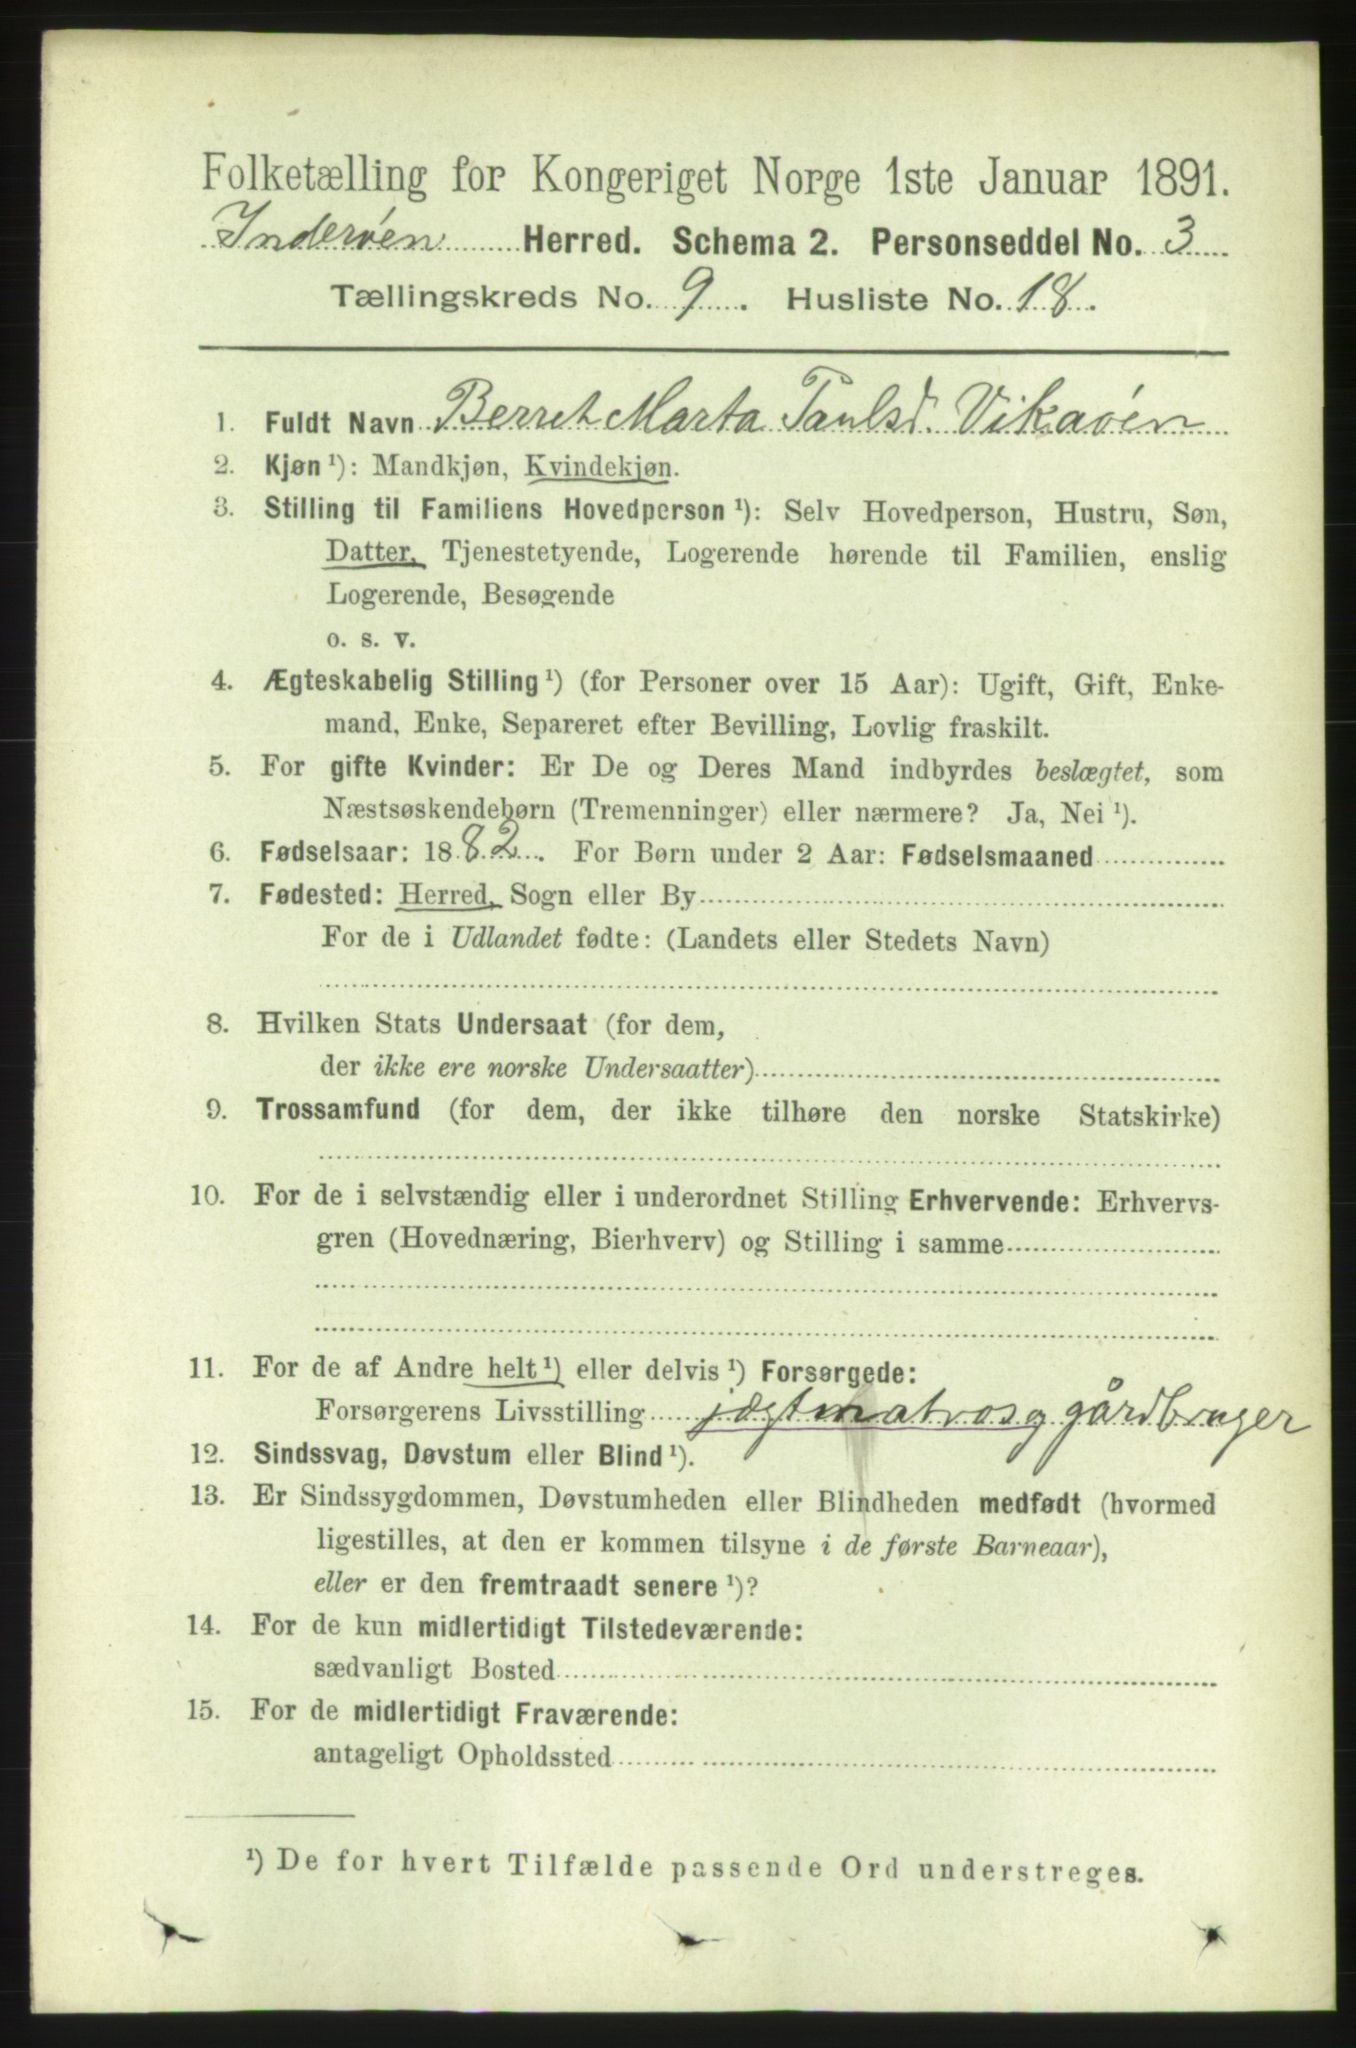 Folketælling for Kongeriget Norge 1ste Januar 1891.
Inderøen Herred. Schema 2. Personseddel No. 3
Tællingskreds No. 9. Husliste No. 18.
1. Fuldt Navn Berret Marta Paulsd. Vikaøen
2. Kjøn ¹): Mandkjøn, Kvindekjøn.
3. Stilling til Familiens Hovedperson ¹): Selv Hovedperson, Hustru, Søn,
Datter, Tjenestetyende, Logerende hørende til Familien, enslig
Logerende, Besøgende
o. s. v.
4. Ægteskabelig Stilling ¹) (for Personer over 15 Aar): Ugift, Gift, Enke-
mand, Enke, Separeret efter Bevilling, Lovlig fraskilt.
5. For gifte Kvinder: Er De og Deres Mand indbyrdes beslægtet, som
Næstsøskendebørn (Tremenninger) eller nærmere? Ja, Nei ¹).
6. Fødselsaar: 1882. For Børn under 2 Aar: Fødselsmaaned
7. Fødested: Herred, Sogn eller By
For de i Udlandet fødte: (Landets eller Stedets Navn)
8. Hvilken Stats Undersaat (for dem,
der ikke ere norske Undersaatter)
9. Trossamfund (for dem, der ikke tilhøre den norske Statskirke)
10. For de i selvstændig eller i underordnet Stilling Erhvervende: Erhvervs-
gren (Hovednæring, Bierhverv) og Stilling i samme
11. For de af Andre helt ¹) eller delvis ¹) Forsørgede:
Forsørgerens Livsstilling jægtmatros og gårdbruger
12. Sindssvag, Døvstum eller Blind ¹).
13. Er Sindssygdommen, Døvstumheden eller Blindheden medfødt (hvormed
ligestilles, at den er kommen tilsyne i de første Barneaar),
eller er den fremtraadt senere ¹)?
14. For de kun midlertidigt Tilstedeværende:
sædvanligt Bosted
15. For de midlertidigt Fraværende:
antageligt Opholdssted
¹) De for hvert Tilfælde passende Ord understreges.